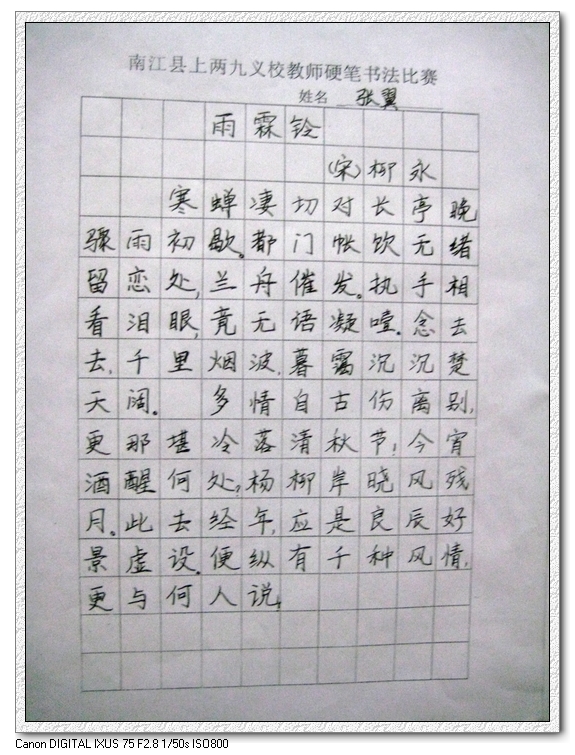 南江县上两九义校教师硬笔书法比赛
姓名 张翼
雨霖铃
(宋)柳永
寒蝉凄切对长亭晚
骤雨初歇。都门帐饮无绪
留恋处,兰舟催发。执手相
看泪眼,竟无语凝噎。念去
去,千里烟波,暮霭沉沉楚
天阔。 多情自古伤离别,
更那堪冷落清秋节!今宵
酒醒何处?杨柳岸晓风残
月。此去经年,应是良辰好
景虚设。便纵有千种风情,
更与何人说?
Canon DIGITAL IXUS 75 F2.8 1/50s ISO800